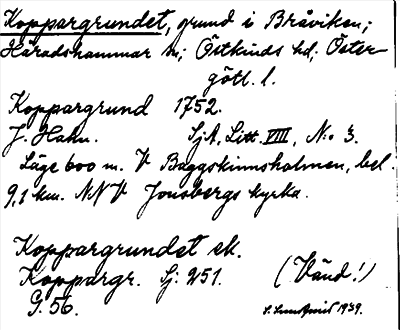 Koppargrundet, grund i Bråviken;
Häradshammar sn; Östkinds hd; Öster-
götl. l.
Koppargrund 1752.
J. Hahn. SjA, Litt. VIII, N:o 3.
Läge 600 m. V Baggskinnsholmen, bel.
9,1 km. NNV Jonsbergs kyrka.
Koppargrundet ek.
Koppargr. Sj: 251. (Vänd!)
G. 56. 1939.